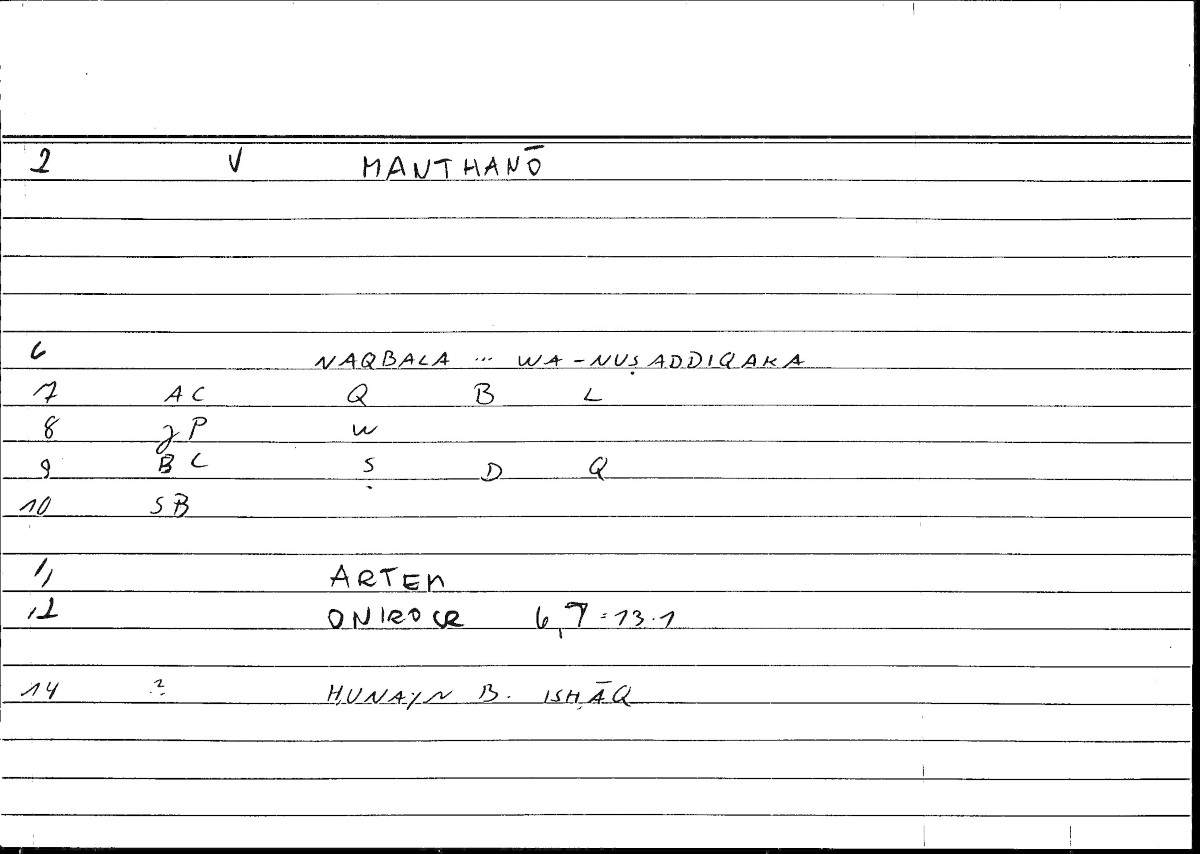 2 V MANTHANŌ
6 NAQBALA ... WA-NUṢADDIQAKA
7 AC Q B L
8 gP W
9 BC Ṣ D Q
10 SB
11 ARTEM
12 ONIROCR 6,7=13.1
14 ? ḤUNAYN B. ISḤĀQ